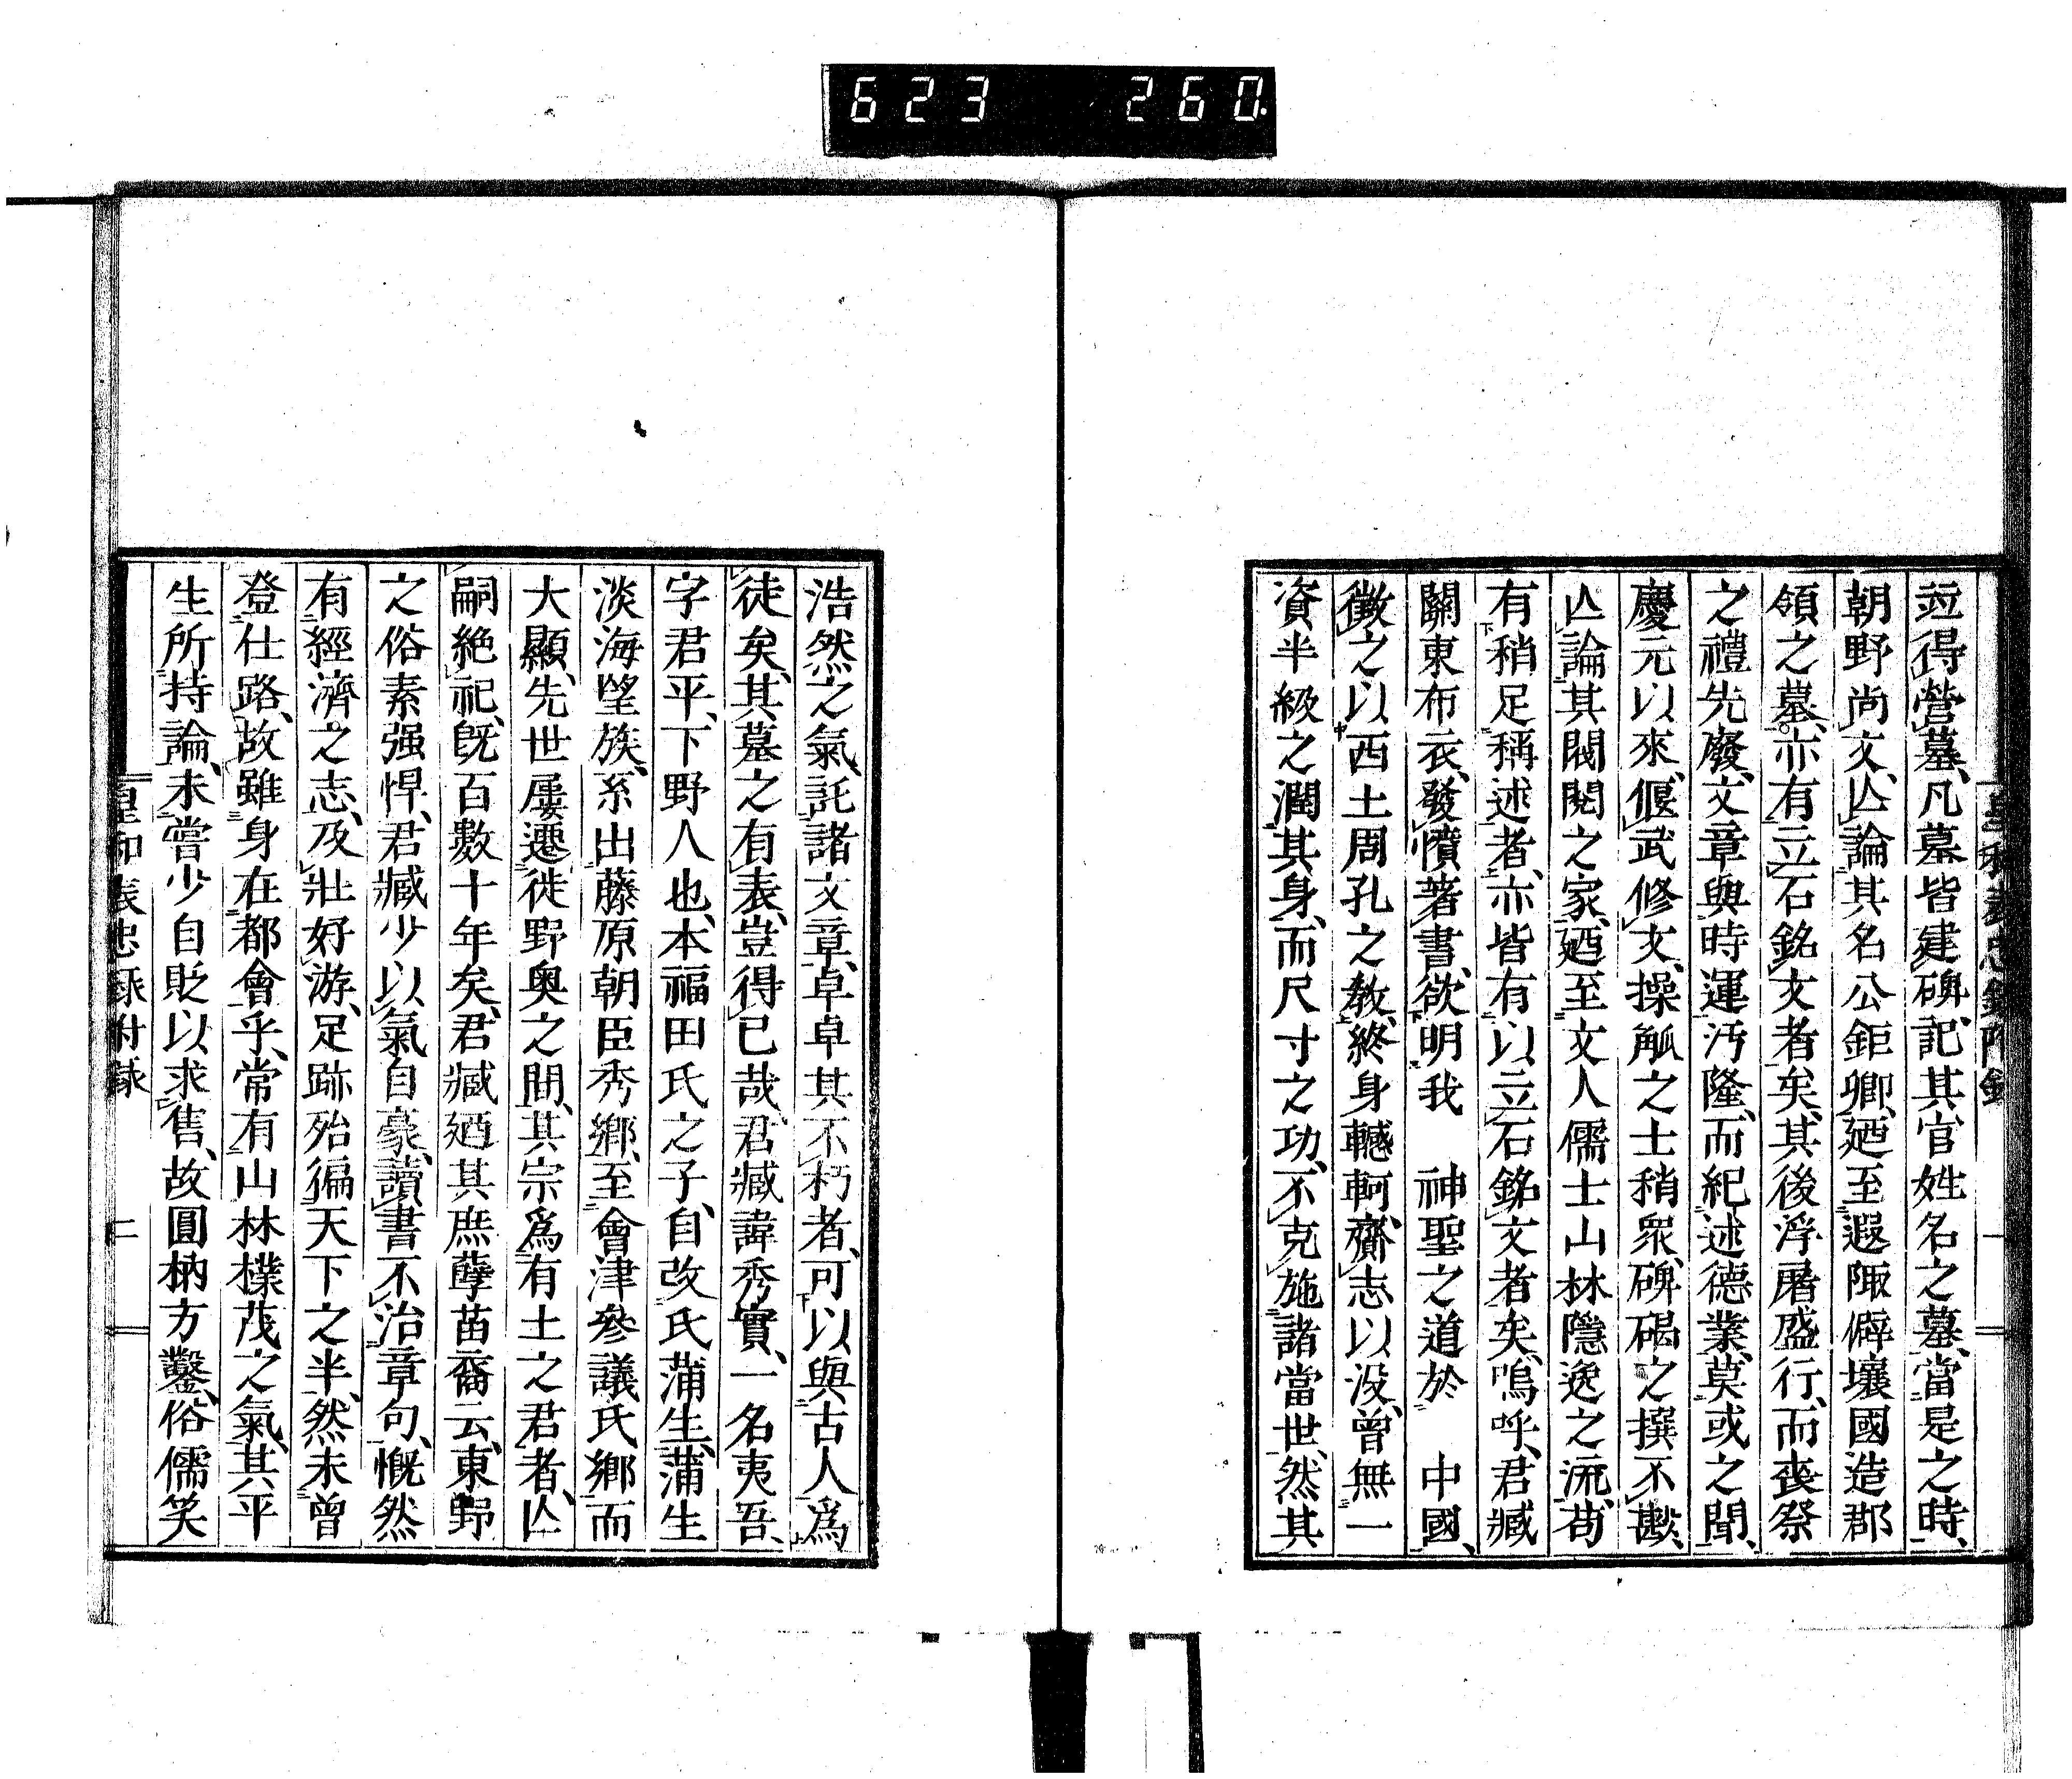 623 260.
竝得營墓、凡墓皆建碑、記其官姓名之墓、當是之時、
朝野尚文、亾論其名公鉅卿、廼至遐陬僻壤國造郡
領之墓、亦有立石銘文者矣、其後浮屠盛行、而喪祭
之禮先廢、文章與時運汚隆、而紀述德業、莫或之聞、
慶元以來、偃武修文、操觚之士稍衆、碑碣之撰不尠、
亾論其閥閱之家、廼至文人儒士山林隱逸之流、苟
有稍足稱述者、亦皆有以立石銘文者矣、嗚呼、君臧
關東布衣、發憤著書、欲明我 神聖之道於 中國、
徵之以西土周孔之敎、終身轗軻、齎志以沒、曾無一
資半級之潤其身、而尺寸之功、不克施諸當世、然其
浩然之氣、託諸文章、卓卓其不朽者、可以與古人爲
徒矣、其墓之有表、豈得已哉、君臧諱秀實、一名夷吾、
字君平、下野人也、本福田氏之子、自改氏蒲生、蒲生
淡海望族、系出藤原朝臣秀鄕、至會津參議氏鄕而
大顯、先世屢遷、徙野奧之間、其宗爲有土之君者、亾
嗣絶祀、旣百數十年矣、君臧廼其庶孽苗裔云、東野
之俗素强悍、君臧少以氣自豪、讀書不治章句、慨然
有經濟之志、及壯好游、足跡殆徧天下之半、然未曾
登仕路、故雖身在都會乎、常有山林樸茂之氣、其平
生所持論、未嘗少自貶以求售、故圓枘方鑿、俗儒笑
皇和表忠錄附錄 二